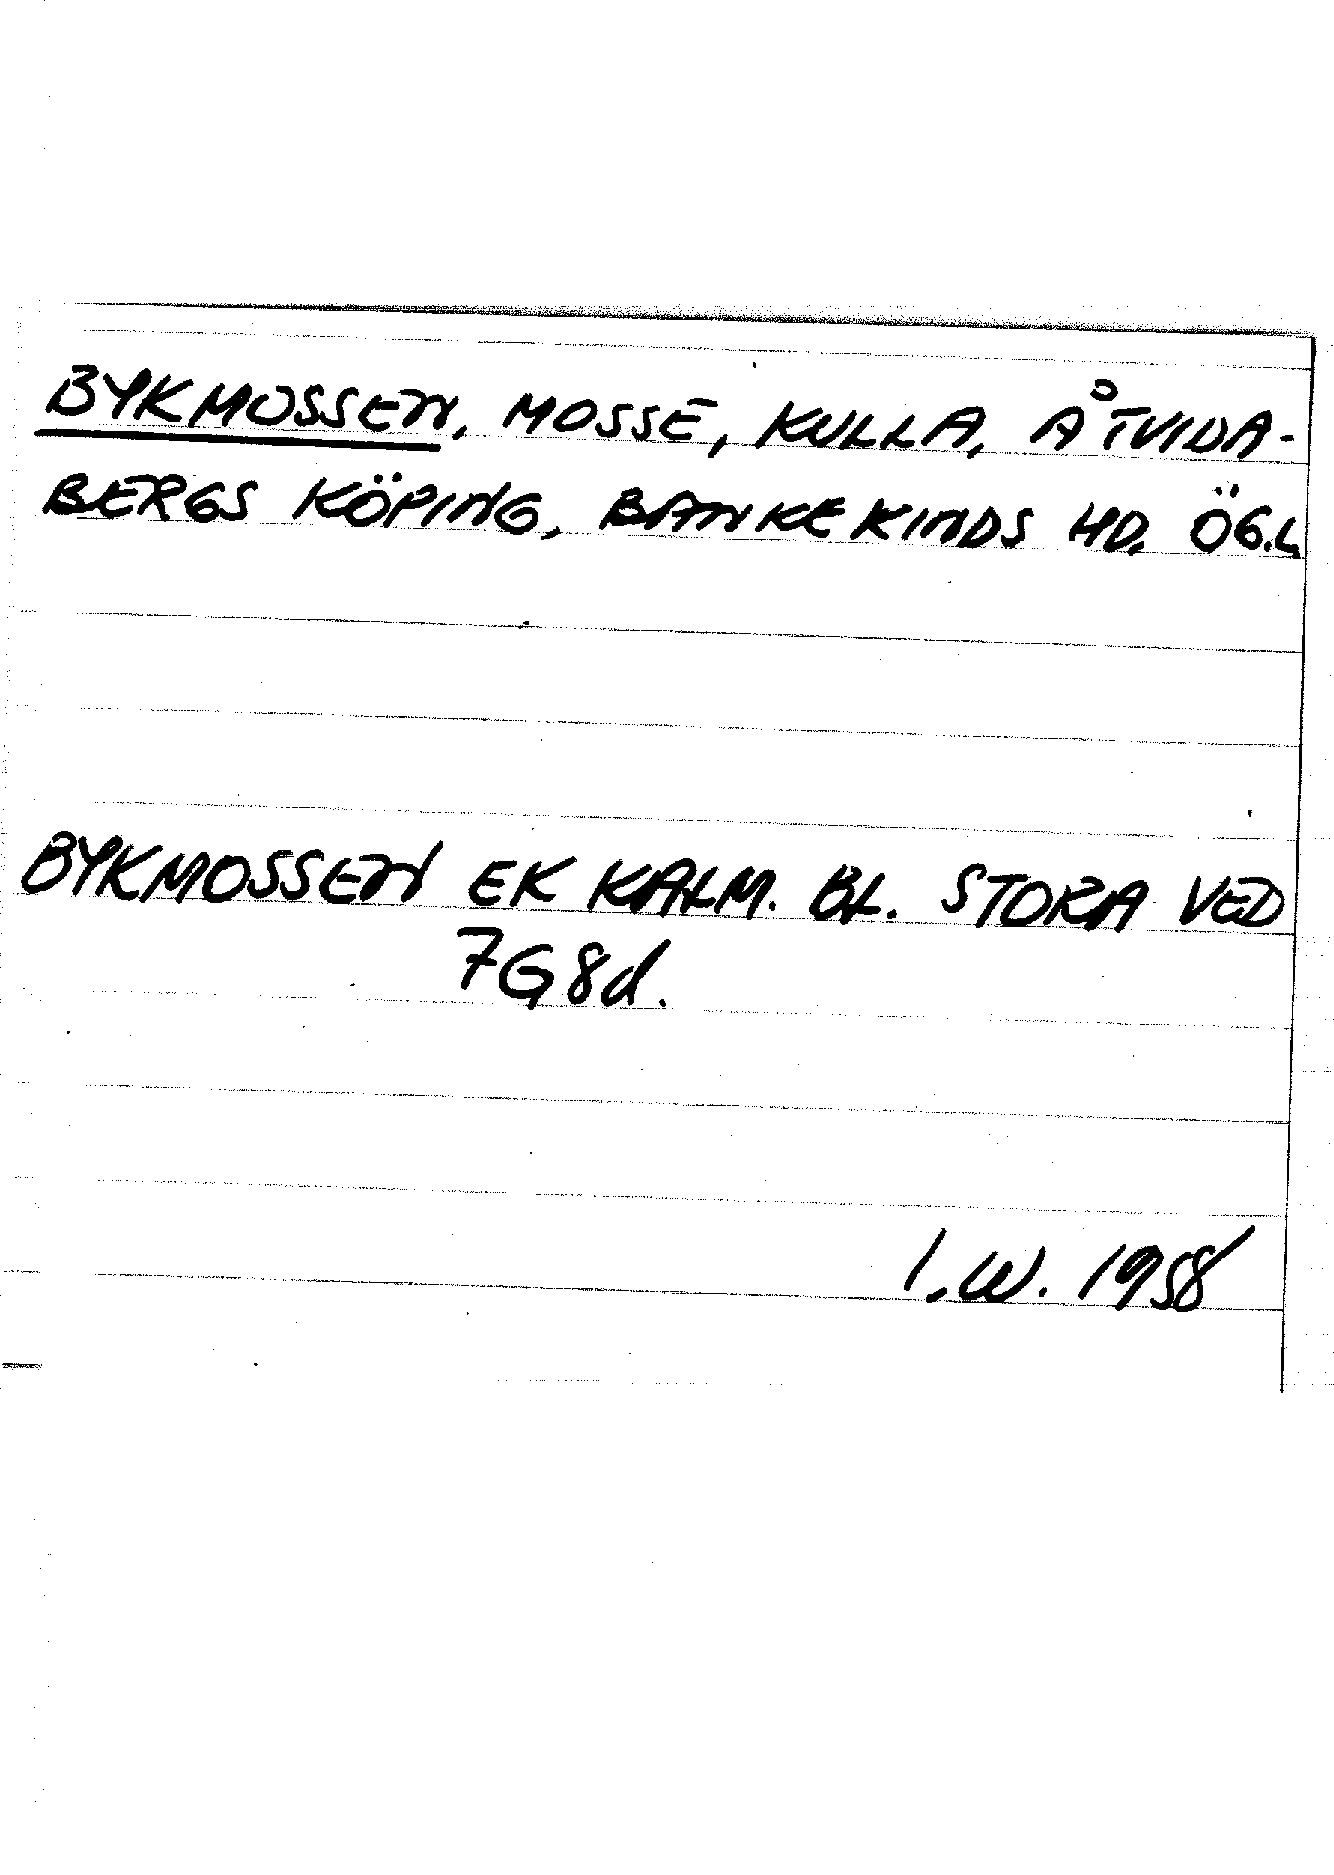 BYKMOSSEN, MOSSE, KULLA, ÅTVIDA-
BERGS KÖPING, BANKEKINDS HD. ÖG.L
BYKMOSSEN EK KALM. BL. STORA VED
7G8d.
I.W. 1958